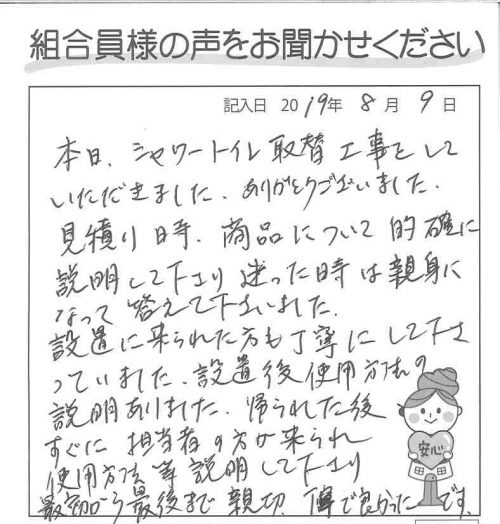 組合員様の声をお聞かせください
記入日 2019年 8月 9日
本日、シャワートイレ取替工事をして
いただきました。ありがとうございました。
見積り時、商品について的確に
説明して下さり迷った時は親身に
なって答えて下さいました。
設置に来られた方も丁寧にして下さ
っていました。設置後使用方法の
説明ありました。帰られた後
すぐに担当者の方が来られ
使用方法等説明して下さり
最初から最後まで親切、丁寧で良かったです。
安心